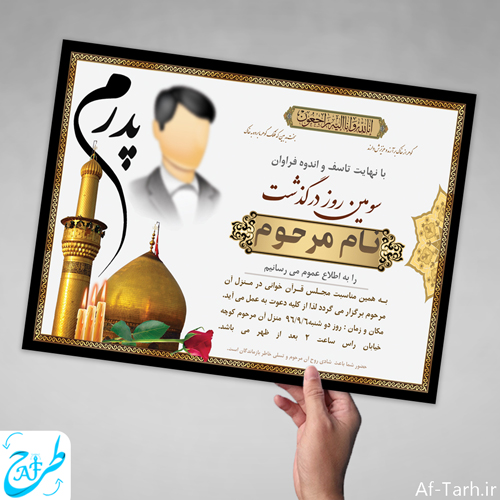 انا لله و انا الیه راجعون
پدرم
با نهایت تاسف و اندوه فراوان
سومین روز درگذشت
نام مرحوم
را به اطلاع عموم می رسانیم
به همین مناسبت مجلس قرآن خوانی در منزل آن
مرحوم برگزار می گردد لذا از کلیه دعوت به عمل می آید.
مکان و زمان : روز دو شنبه ۹۶/۹/۶ منزل آن مرحوم کوچه
خیابان راس ساعت ۲ بعد از ظهر می باشد
حضور شما باعث شادی روح آن مرحوم و تسلی خاطر بازماندگان است.
طرح
AF
Af-Tarh.ir